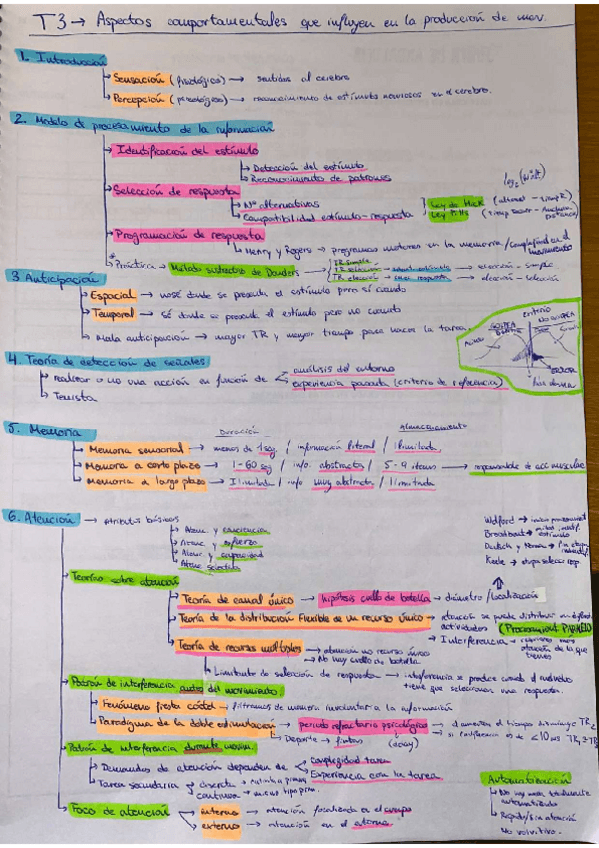 T3 → Aspectos comportamentales que influyen en la producción de mov.
1. Introducción
Sensación (fisiológico) → sentidos al cerebro
Percepción (psicológico) → reconocimiento de estímulos nerviosos en el cerebro.
2. Modelo de procesamiento de la información
Identificación del estímulo
Detección del estímulo
Reconocimiento de patrones
Selección de respuesta
Nº alternativas
Compatibilidad estímulo-respuesta
Ley de Hick
Ley Fitts
Programación de respuesta
Henry y Rogers → programas motores en la memoria / complejidad en el movimiento
* Práctica → Método sustractivo de Donders
TR simple
TR selección
TR elección
elección - simple
elección - selección
3 Anticipación
Espacial → donde se presenta el estímulo pero sí cuando
Temporal → sé donde se presenta el estímulo pero no cuando
Mala anticipación → mayor TR y mayor tiempo para hacer la tarea.
4. Teoría de detección de señales
realizar o no una acción en función de
análisis del entorno
experiencia pasada (criterio de referencia)
Tenista
criterio
NO GOLPEA
ERROR
5. Memoria
Duración
Almacenamiento
Memoria sensorial → menos de 1 seg / información literal / Ilimitada
Memoria a corto plazo → 1-60 seg / info. abstracta / 5-9 items → responsable de acc musculares
Memoria a largo plazo → Ilimitada / info muy abstracta / Ilimitada
6. Atención → Atributos básicos
Atenc. y conciencia
Atenc. y esfuerzo
Atenc. y capacidad
Atenc selectiva
Welford
Broadbent → estímulo
Deutsch y Norman
Keele → etapa selecc resp.
Teorías sobre atención
Teoría de canal único → hipótesis cuello de botella → diámetro / localización
Teoría de la distribución Flexible de un recurso único → atención se puede distribuir en
actividades (Procesamient PARALELO)
Interferencia
atención de la que
tienes
Teoría de recursos múltiples → atención no recurso único
No hay cuello de botella
Limitante de selección de respuesta → interferencia se produce cuando el individuo
tiene que seleccionar una respuesta.
Patrón de interferencia antes del movimiento
Fenómeno fiesta cóctel → filtramos de manera involuntaria la información
Paradigma de la doble estimulación → periodo refractario psicológico
Deporte → fintas
(delay)
Patrón de interferencia durante movim.
Demandas de atención dependen de
complejidad tarea
Experiencia con la tarea
Tarea secundaria
discreta
continua
Foco de atención
interno → atención focalizada en el cuerpo
externo → atención en el entorno
Automatización
No hay mov. totalmente
automatizado
Rápido/sin atención
No volitivo.